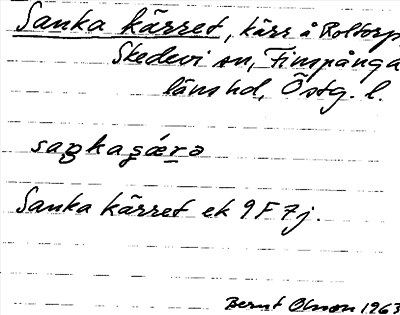 Sanka kärret, kärr å Roltorp
Skedevi sn, Finspånga
läns hd, Östg. l.
Sanka kärret ek 9F 7j.
Bernt Olsson 1963